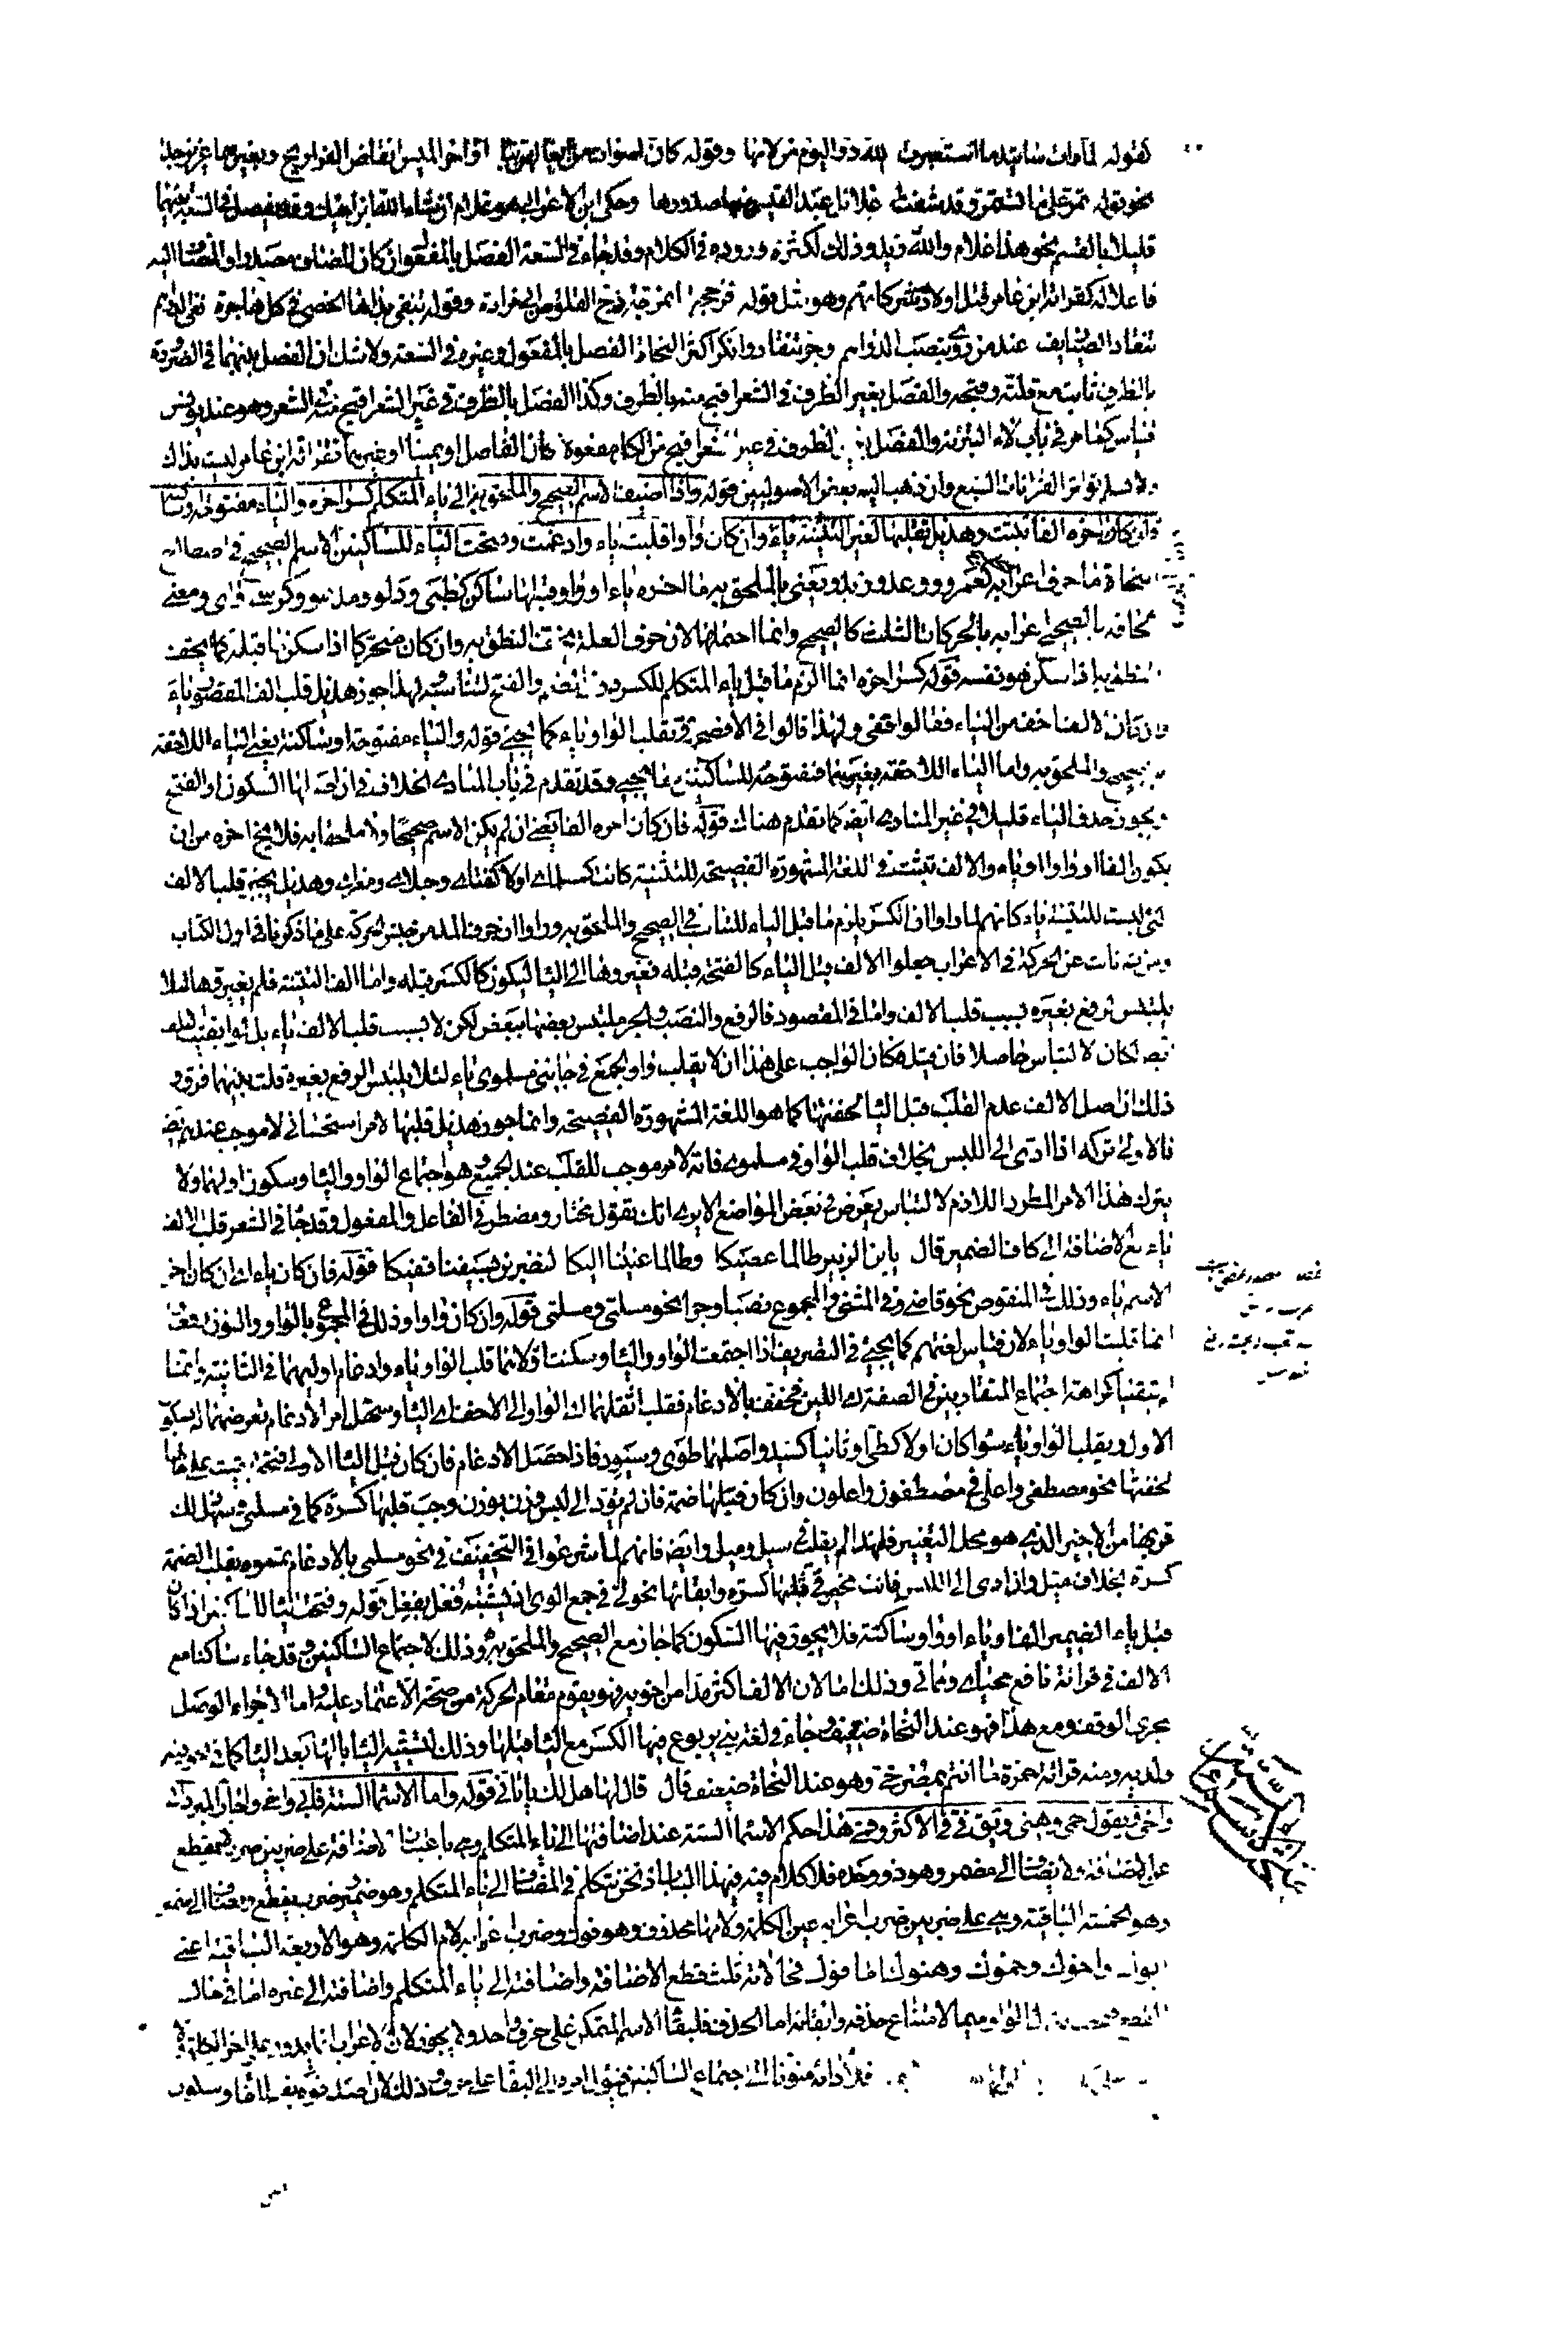 كقوله لما رأت ساتيدما استعبرت لله در اليوم من لامها وقوله كان اصوات من ايغالهن بنا اواخر الميس انقاض الفراريج وبغيرهما عزيز جدا
نحو قوله تمر على ما تستمر وقد شفت غلائل عبد القيس منها صدورها وحكى ابن الاعرابي هو غلام ان شاء الله ابن اخيك وقد يفصل في السعة بينهما
قليلا بالقسم نحو هذا غلام والله زيد وذلك لكثرة وروده في الكلام وقد جاء في السعة الفصل بالمفعول ان كان المضاف مصدرا والمضاف اليه
فاعلا له كقراءة ابن عامر قتل اولادهم شركائهم وهو مثل قوله فزججتها بمزجة زج القلوص ابي مزادة وقوله تنفي يداها الحصى في كل هاجرة نفي الدراهم
تنقاد الصياريف عند من روى بنصب الدراهم وجر تنقاد وانكر اكثر النحاة الفصل بالمفعول وغيره في السعة ولا شك ان الفصل بينهما في الضرورة
بالظرف ثابت مع قلته وقبحه والفصل بغير الظرف في الشعر اقبح منه بالظرف وكذا الفصل بالظرف في غير الشعر اقبح منه في الشعر وهو عند يونس
قياس كما مر في باب لاء التبرئة والفصل بغير الظرف في غير الشعر اقبح من الكل مفعولا كان الفاصل او يمينا او غيرهما فقراءة ابن عامر ليست بذاك
ولا نسلم تواتر القراءات السبع وان ذهب اليه بعض الاصوليين قوله واذا اضيف الاسم الصحيح والملحق به الى ياء المتكلم كسر اخره والياء مفتوحة او ساكنة
فان كان اخره الفا تثبت وهذيل تقلبها لغير التثنية ياء وان كان واوا قلبت ياء وادغمت وفتحت الياء للساكنين الاسم الصحيح في اصطلاح
النحاة ما حرف اعرابه صحيح كعمرو ووعد وزيد ويعني بالملحق به ما اخره ياء او واو قبلها ساكن كظبي ودلو
الحاقه بالصحيح اعرابه بالحركات الثلث كالصحيح وانما احتملها لان حرف العلة يخف النطق به وان كان متحركا اذا سكن ما قبله كما يخف
النطق به اذا سكن هو نفسه قوله كسر اخره انما الزم ما قبل ياء المتكلم للكسر دون الضم والفتح لتناسبه ولهذا جوز هذيل قلب الف المقصور ياء
وان كان الالف اخف من الياء فقالوا قفي ولهذا قالوا في الافصح في بقلب الواو ياء كما يجيء قوله والياء مفتوحة او ساكنة يعني الياء اللاحقة
بالصحيح والملحق به واما الياء اللاحقة بغيرهما فمفتوحة للساكنين كما يجيء وقد تقدم في باب المنادى الخلاف في ان اصلها السكون او الفتح
ويجوز حذف الياء قليلا في غير المنادى ايضا كما تقدم هناك قوله فان كان اخره الفا يعني ان لم يكن الاسم صحيحا ولا ملحقا به فلا يخ اخره من ان
يكون الفا او واوا او ياء والالف تثبت في اللغة المشهورة الفصيحة للتثنية كانت كمسلماي اولا كفتاي وحبلاي ومعزاي وهذيل يجيز قلب الالف
التي ليست للتثنية ياء كانهم لما راوا ان الكسر يلزم ما قبل الياء للتناسب في الصحيح والملحق به وراوا ان حرف المد من جنس الحركة على ما ذكرنا في اول الكتاب
ومن ثم نابت عن الحركة في الاعراب جعلوا الالف قبل الياء كالفتحة قبله فغيروها الى الياء ليكون كالكسر قبله واما الف التثنية فلم يغيروها لئلا
يلتبس الرفع بغيره بسبب قلب الالف واما في المقصود فالرفع والنصب والجر ملتبس بعضها ببعض لكن لا بسبب قلب الالف ياء بل لو ابقيت الالف
ايضا لكان الالتباس حاصلا فان قيل فكان الواجب على هذا ان لا يقلب واو الجمع في جاءني مسلموي ياء لئلا يلتبس الرفع بغيره قلت بينهما فرق و
ذلك ان اصل الالف عدم القلب قبل الياء لخفتها كما هو اللغة المشهورة الفصيحة وانما جوز هذيل قلبها لامر استحساني لا موجب عندهم ايضا
فالاولى تركه اذا ادى الى اللبس بخلاف قلب الواو في مسلموي فانه لامر موجب للقلب عند الجميع وهو اجتماع الواو والياء وسكون اولهما ولا
يترك هذا الامر المطرد اللازم لالتباس يعرض في بعض المواضع الا يرى انك تقول مختار ومضطر في الفاعل والمفعول وقد جاء في الشعر قلب الالف
ياء مع الاضافة الى كاف الضمير قال يا ابن الزبير طالما عصيكا وطالما عنيتنا اليكا لنضربن بسيفنا قفيكا قوله فان كان ياء اي ان كان اخر
الاسم ياء وذلك في المنقوص نحو قاضي وفي المثنى والمجموع نصبا وجرا نحو مسلمي ومسلمي قوله وان كان واوا وذلك في المجموع بالواو والنون رفعا
انما قلبت الواو ياء لان قياس لغتهم كما يجيء في التصريف اذا اجتمعت الواو والياء وسكنت اولاهما قلب الواو ياء وادغام اوليهما في الثانية وانما
كراهة اجتماع المتقاربين في الصفة اي اللين فخفف بالادغام فقلب اثقلهما اي الواو الى الاخف اي الياء وسهل امر الادغام تعرضهما له بسكون
الاول ويقلب الواو ياء سواء كان اولا كطي او ثانيا كسيد واصلهما طوي وسيود فاذا حصل الادغام فان كان قبل الياء الاولى فتحة بقيت على حالها
لخفتها نحو مصطفي واعلي في مصطفون واعلون وان كان قبلها ضمة فان لم يؤد الى لبس وزن بوزن وجب قلبها كسرة كما في مسلمي وسهل ذلك
قربها من الاخير الذي هو محل التغيير فلهذا لم يقلب في سيل وميل وايضا فانهم لما شرعوا في التخفيف في نحو مسلمي بالادغام تمموه بقلب الضمة
كسرة بخلاف ميل واذا ادى الى اللبس فانت مخير في قلبها كسرة وابقائها نحو لي في جمع الوى اذ يشتبه فعل بفعل قوله وفتحت الياء للساكنين اذا كان
قبل ياء الضمير الف او ياء او واو ساكنة فلا يجوز فيها السكون كما جاز مع الصحيح والملحق به وذلك لاجتماع الساكنين وقد جاء ساكنا مع
الالف في قراءة نافع محياي ومماتي وذلك اما لان الالف اكثر مدا من اخويه فهو يقوم مقام الحركة من صحة الاعتماد عليه واما لاجراء الوصل
مجرى الوقف ومع هذا فهو عند النحاة ضعيف وجاء في لغة بني يربوع فيها الكسر مع الياء قبلها وذلك لتشبيه الياء بالهاء بعد الياء كما في نحو فيه
ولديه ومنه قراءة حمزة ما انتم بمصرخي وهو عند النحاة ضعيف قال قال لها هل لك يا تا في قوله واما الاسماء الستة فابي واخي واجاز المبرد ابي
واخي ويقول حمي وهني ويق في في الاكثر وفمي هذا حكم الاسماء الستة عند اضافتها الى ياء المتكلم وهي باعتبار الاضافة على ضربين ضرب لا يقطع
عن الاضافة ولا يضاف الى مضمر وهو ذو وحده فلا كلام فيه في هذا الباب اذ نحن نتكلم في المضاف الى ياء المتكلم وهو ضمير وضرب يقطع ويضاف الى ضمير
وهو الخمسة الباقية وهي على ضربين ضرب اعرابه عين الكلمة ولامها محذوف وهو فوك وضرب اعرابه لام الكلمة وهو الاربعة الباقية اعني
ابوك واخوك وحموك وهنوك اما فوك فحالاته ثلث قطع الاضافة واضافته الى ياء المتكلم واضافته الى غيره اما في حال
القطع فيجب ابدال الواو ميما لامتناع حذفه وابقائه اما الحذف فلبقاء الاسم المتمكن على حرف واحد ولا يجوز لان الاعراب انما يدور على اخر الكلمة
فلأدائه منونا الى اجتماع الساكنين فيؤل امره الى البقاء على حرف وذلك لان اصله فوه